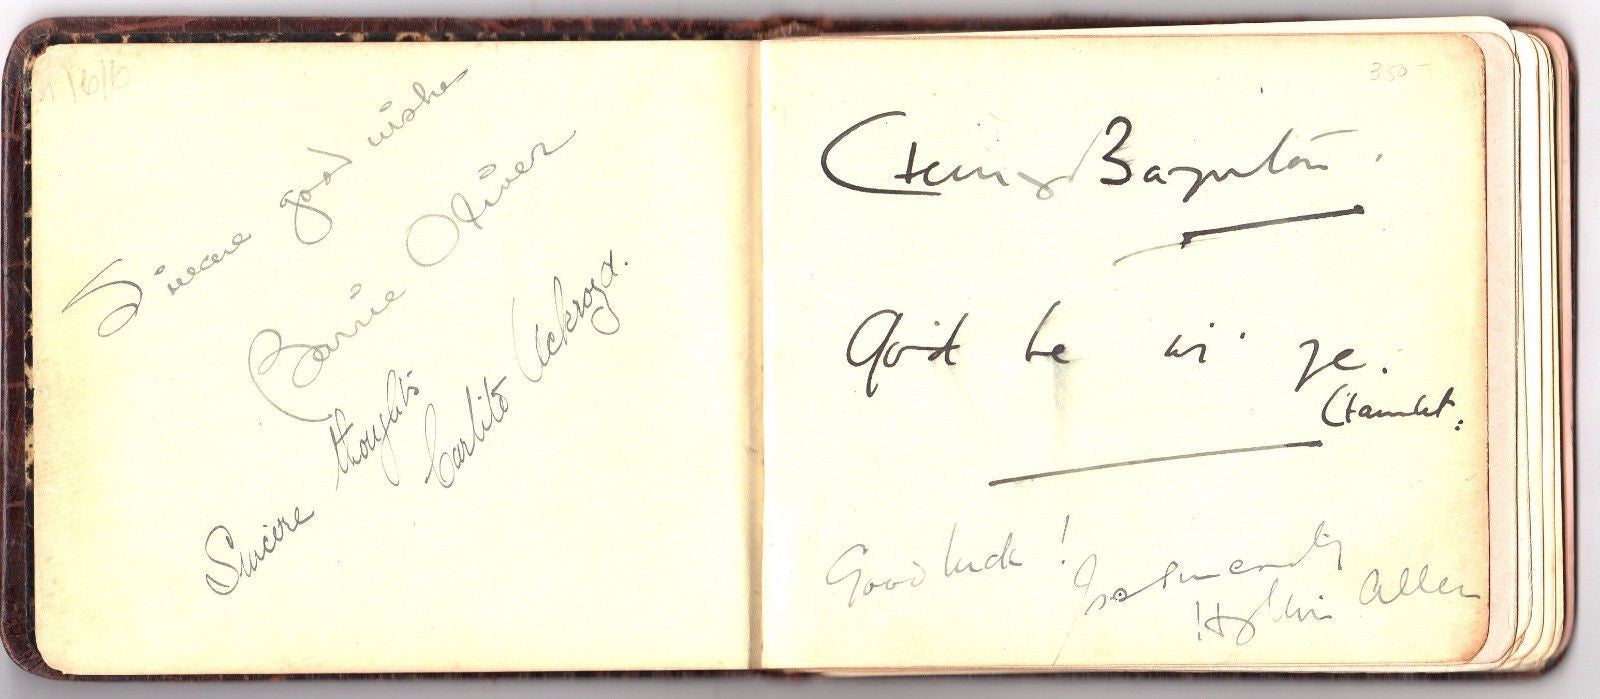 4/6/6
Sincere good wishes
Barrie Oliver
Sincere thoughts
Carlito Ackroyd.
350-
Henry Baynton.
God be wi' ye.
Hamlet.
Good luck!
Yrs sincerely
Allen